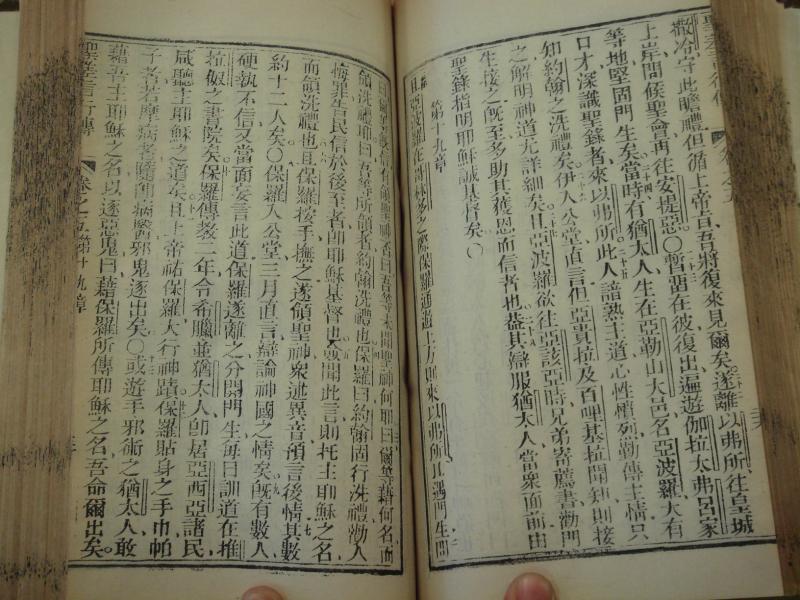 撒冷守此瞻禮但循上帝旨吾將復來見爾矣遂離以弗所往皇城
上岸問候聖會再往安提惡〇暫留在彼復出遍遊伽拉太弗呂家
等地堅固門生矣當時有猶太人生在亞勒山大邑名亞波羅大有
口才深識聖錄者來以弗所此人諳熟主道心性懽列勸傳主情只
知約翰之洗禮矣伊人公堂直言但亞貴拉及百哩基拉聞知則接
之解明神道尤詳細矣且亞波羅欲往亞該亞時兄弟寄薦書勸門
生接之旣至多助其獲恩而信者也益其辯服猶太人當衆面前由
聖錄指明耶穌誠基督矣〇
第十九章
且亞波羅在哥林多之際保羅通遊上方則來以弗所且遇門生問
領洗禮耶曰吾等所領者約翰洗禮也保羅曰約翰固行洗禮勸人
悔罪告民信於後至者卽耶穌基督也聞此言則托主耶穌之名
而領洗禮也且保羅按手撫之遂領聖神衆述異音預言後情其數
約十二人矣〇保羅入公堂三月直言辯論神國之情矣旣有數人
硬執不信又當面妄言此道保羅遂離之分開門生每日訓道在推
拉㑄之書院矣保羅傳教二年令希臘並猶太人卽居亞西亞諸民
咸聽主耶穌之道矣且上帝祐保羅大行神蹟保羅貼身之手巾帕
子者若摩病者隨卽病醫邪鬼逐出矣〇或遊手邪術之猶太人敢
藉吾主耶穌之名以逐惡鬼曰藉保羅所傳耶穌之名吾命爾出矣
聖差言行傳 卷之五第十九章